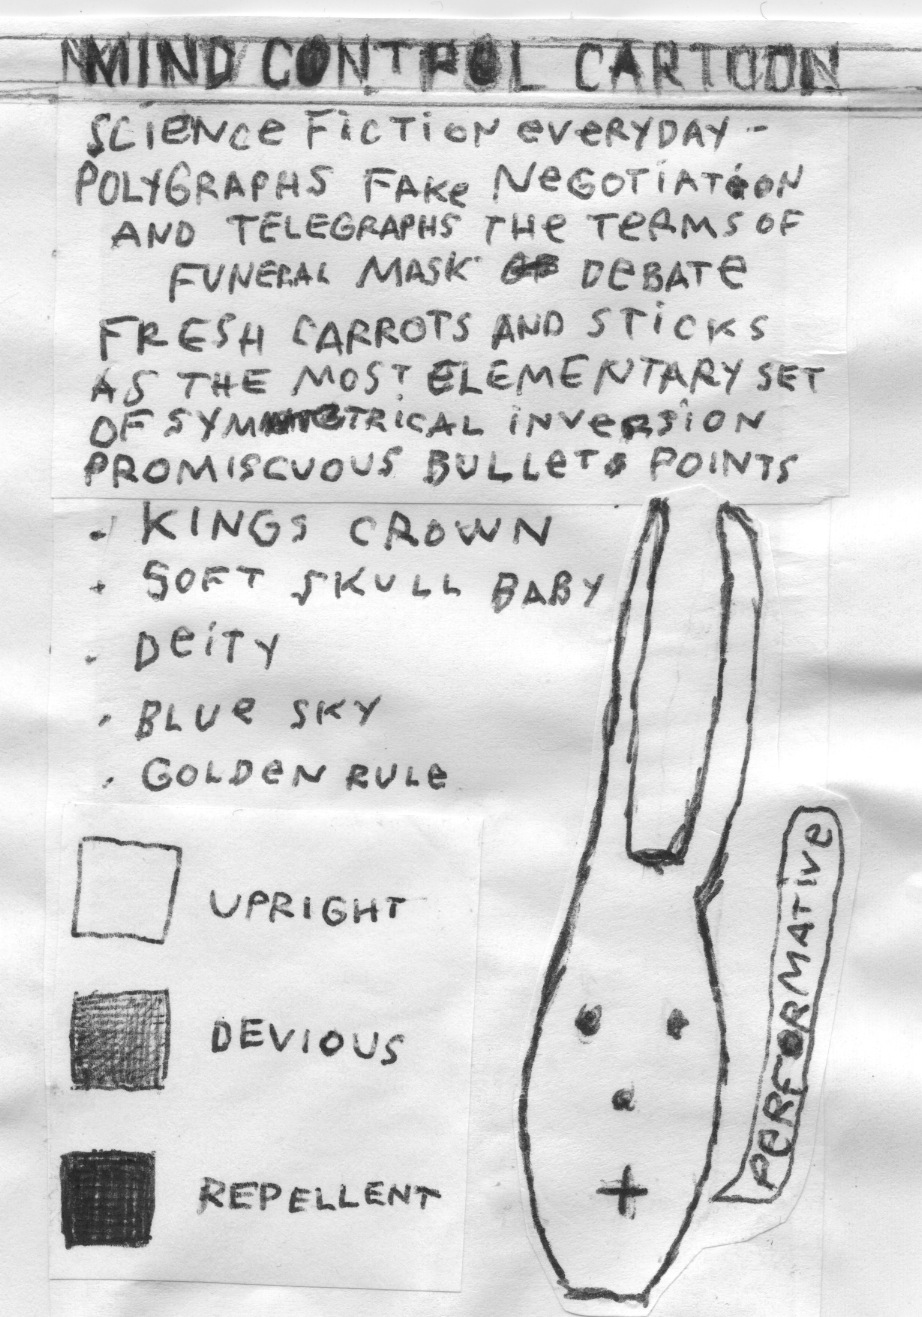 MIND CONTROL CARTOON
SCIENCE FICTION EVERYDAY -
POLYGRAPHS FAKE NEGOTIATION
AND TELEGRAPHS THE TERMS OF
FUNERAL MASK DEBATE
FRESH CARROTS AND STICKS
AS THE MOST ELEMENTARY SET
OF SYMMETRICAL INVERSION
PROMISCUOUS BULLET POINTS
- KINGS CROWN
- SOFT SKULL BABY
- DEITY
- BLUE SKY
- GOLDEN RULE
UPRIGHT
DEVIOUS
REPELLENT
PERFORMATIVE